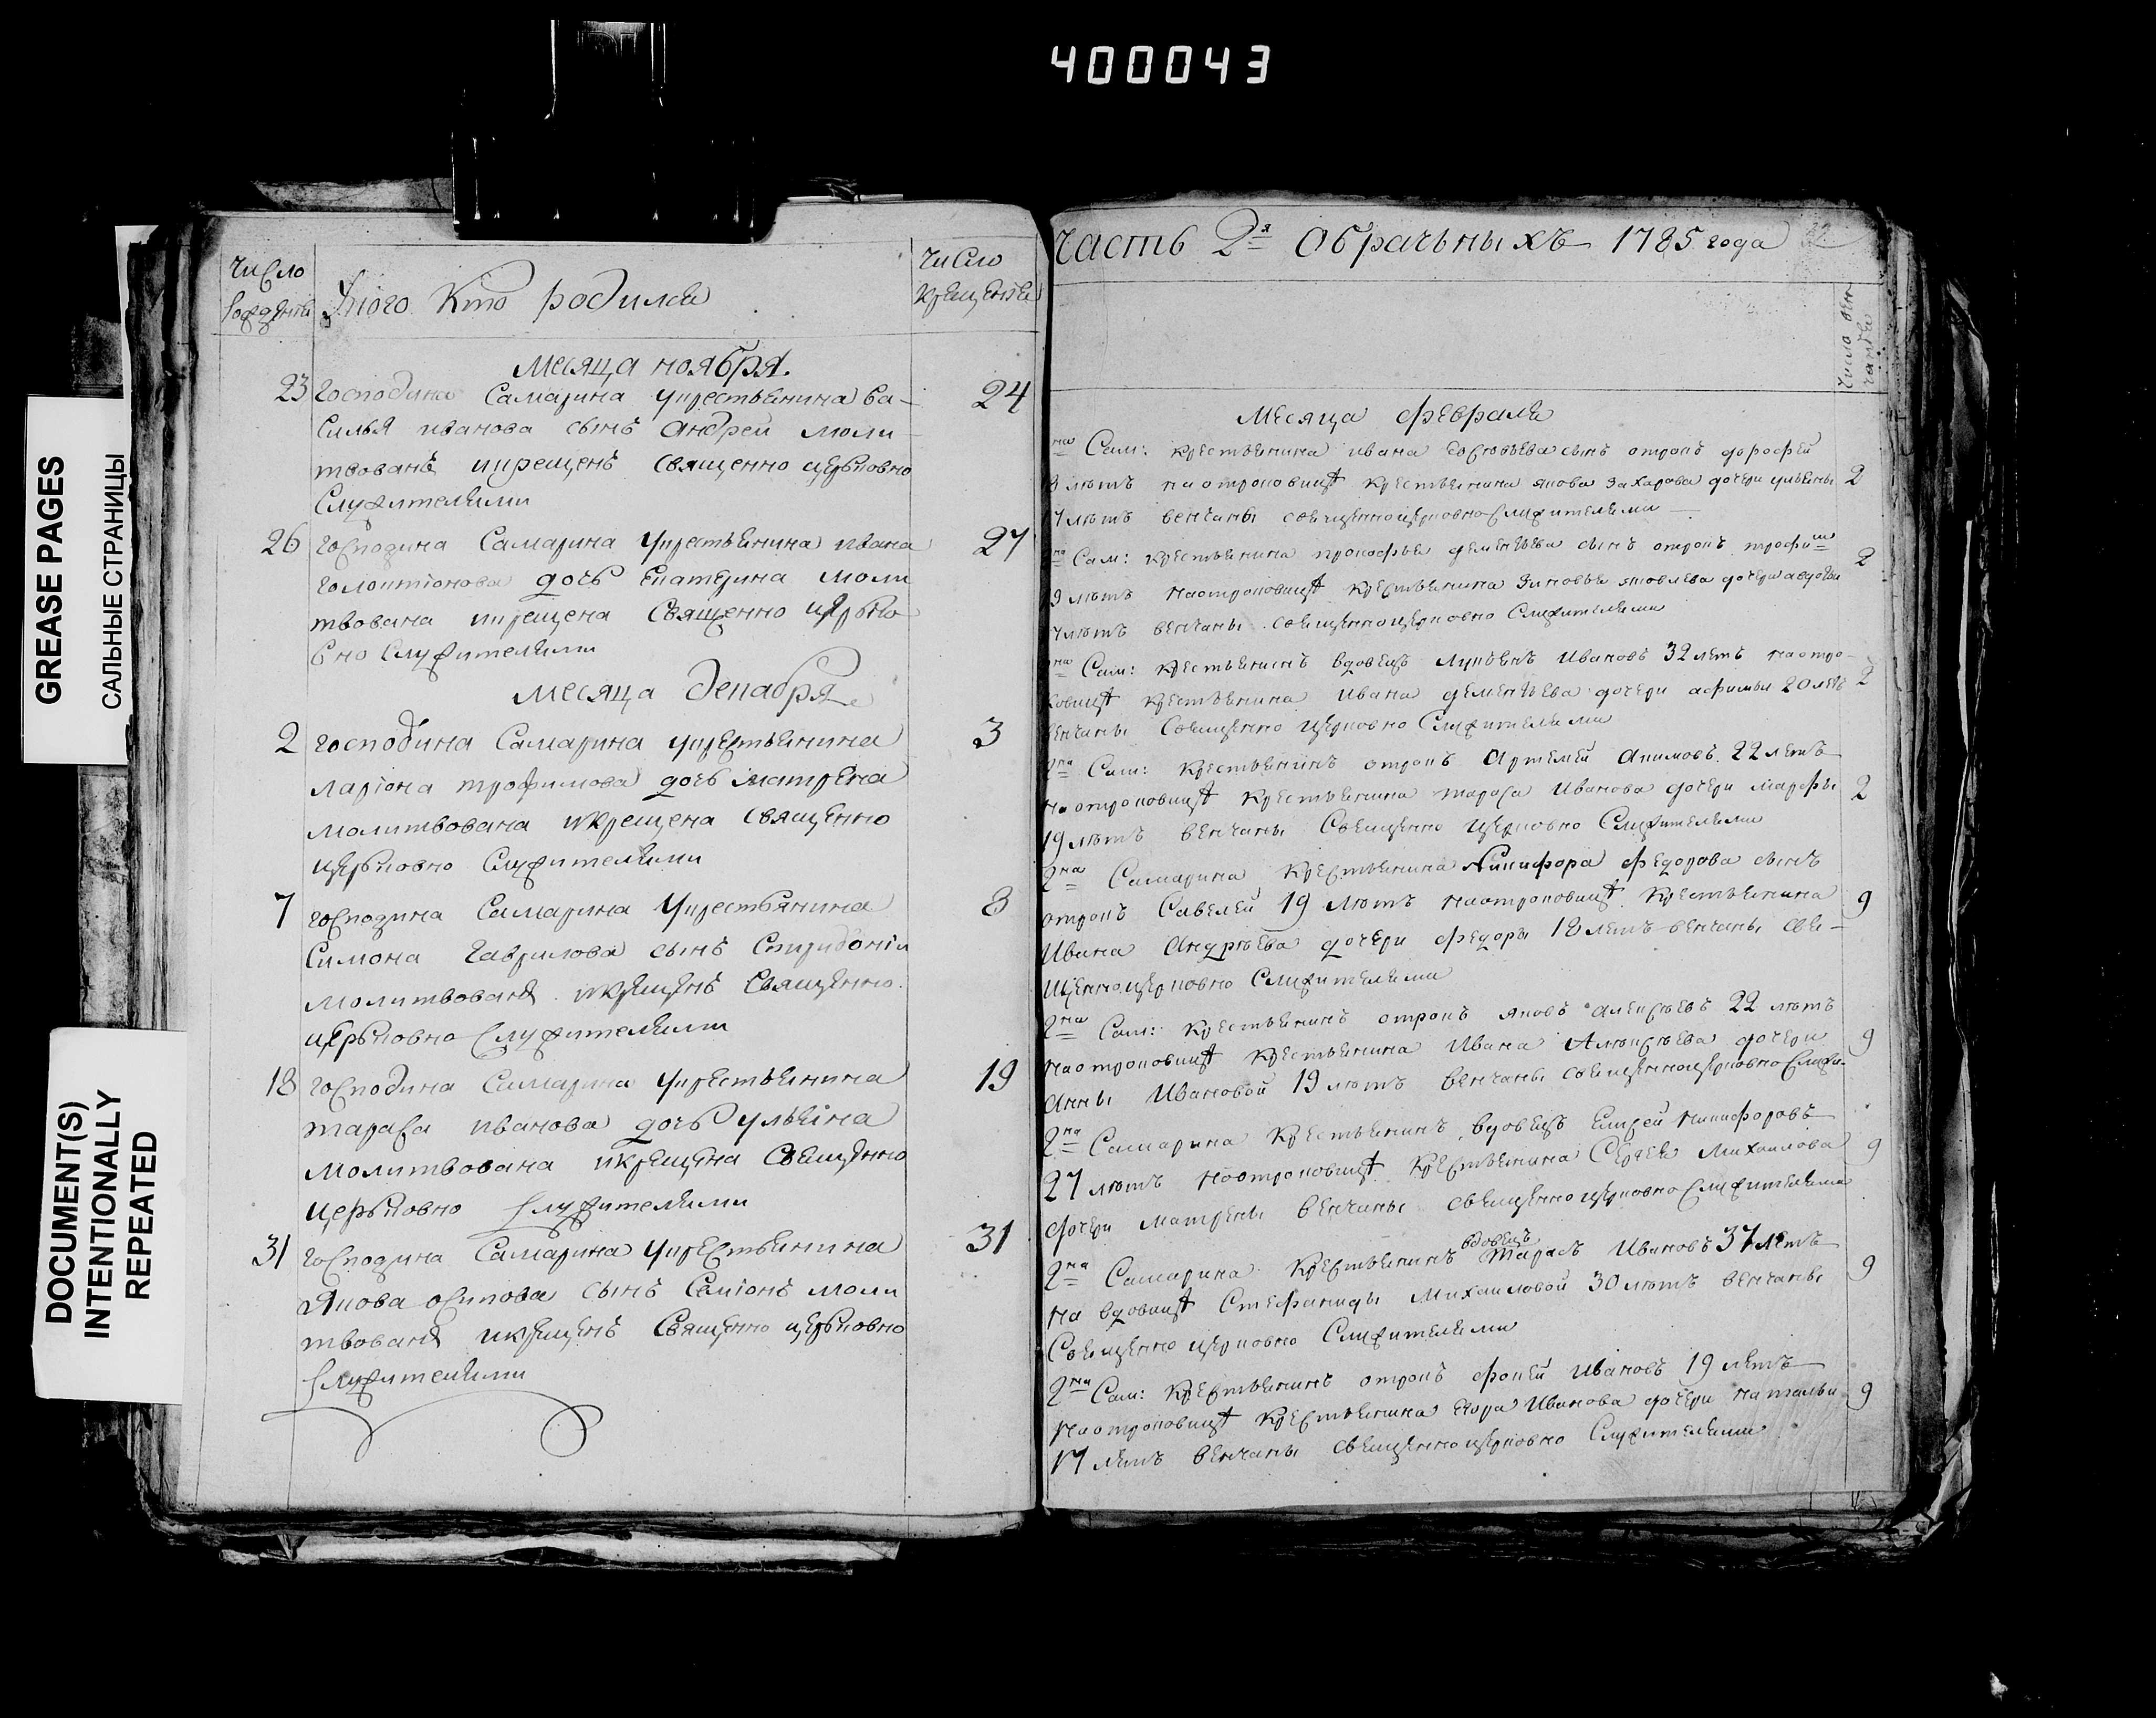 400043
GREASE PAGES
САЛЬНЫЕ СТРАНИЦЫ
DOCUMENT(S)
INTENTIONALLY
REPEATED
Число
рожденiя
У кого кто родился
Число
крещенiя
месяца ноября.
23 господина Самарина укрестьянина ва-
силья иванова сынъ андрей моли
твованъ икрещенъ священно церьковно
служителями
24
26 господина Самарина укрестьянина ивана
дочь екатерина моли
твована икрещена священно церько
вно служителями
27
месяца декабря
2 господина Самарина укрестьянина
ларiона трофимова дочь матрена
молитвована икрещена священно
церьковно служителями
3
7 господина Самарина укрестьянина
Симона гаврилова сынъ Спиридонiи
молитвованъ икрещенъ священно
церьковно служителями
8
18 господина Самарина укрестьянина
тараса иванова дочь ульяна
молитвована икрещена свещенно
церьковно служителями
19
31 господина Самарина укрестьянина
Якова осипова сынъ Семiонъ моли
твованъ икрещенъ священно церьковно
служителями
31
часть 2я обрачьныхъ 1785 года
число вен
чанiя
Месяца февраля
на Сам: крестьянина ивана сынъ отрокъ дорофей
летъ наотроковице крестьянина якова захарова дочери ульяны 2
летъ венчаны свещенноцерковно служителями
на Сам: крестьянина прокофья дементьева сынъ отрокъ трофим
летъ наотроковице крестьянина зиновья яковлева дочери авдотьи 2
летъ венчаны свещенноцерковно служителями
на Сам: крестьянинъ вдовецъ лукьянъ Ивановъ 32 летъ наотро-
ковице крестьянина ивана дементьева дочери афимьи 20 летъ 2
венчаны Свещенно церковно Служителями
2на Сам: крестьянинъ отрокъ Артемей Акимовъ 22 летъ
наотроковице крестьянина тараса Иванова дочери марфы 2
19 летъ венчаны Свещенно церковно Служителями
2на Самарина крестьянина Никифора федорова сынъ
отрокъ Савелей 19 летъ наотроковице крестьянина 9
Ивана Андреева дочери федоры 18 летъ венчаны све-
щенноцерковно Служителями
2на Сам: крестьянинъ отрокъ яковъ алексеевъ 22 летъ
наотроковице крестьянина Ивана Алексеева дочери 9
анны Ивановой 19 летъ венчаны свещенноцерковно Служи-
2на Самарина крестьянинъ вдовецъ никифоровъ
27 летъ наотроковице крестьянина Сергея Михаилова 9
дочери матрены венчаны свещенно церковно Служителями
вдовецъ
2на Самарина крестьянинъ Тарасъ Ивановъ 37 летъ
на вдовице Стефаниды Михаиловой 30 летъ венчаны 9
Свещенно церковно Служителями
2на Сам: крестьянинъ отрокъ фокей Ивановъ 19 летъ
наотроковице крестьянина Иванова дочери натальи 9
17 летъ венчаны свещенноцерковно Служителями